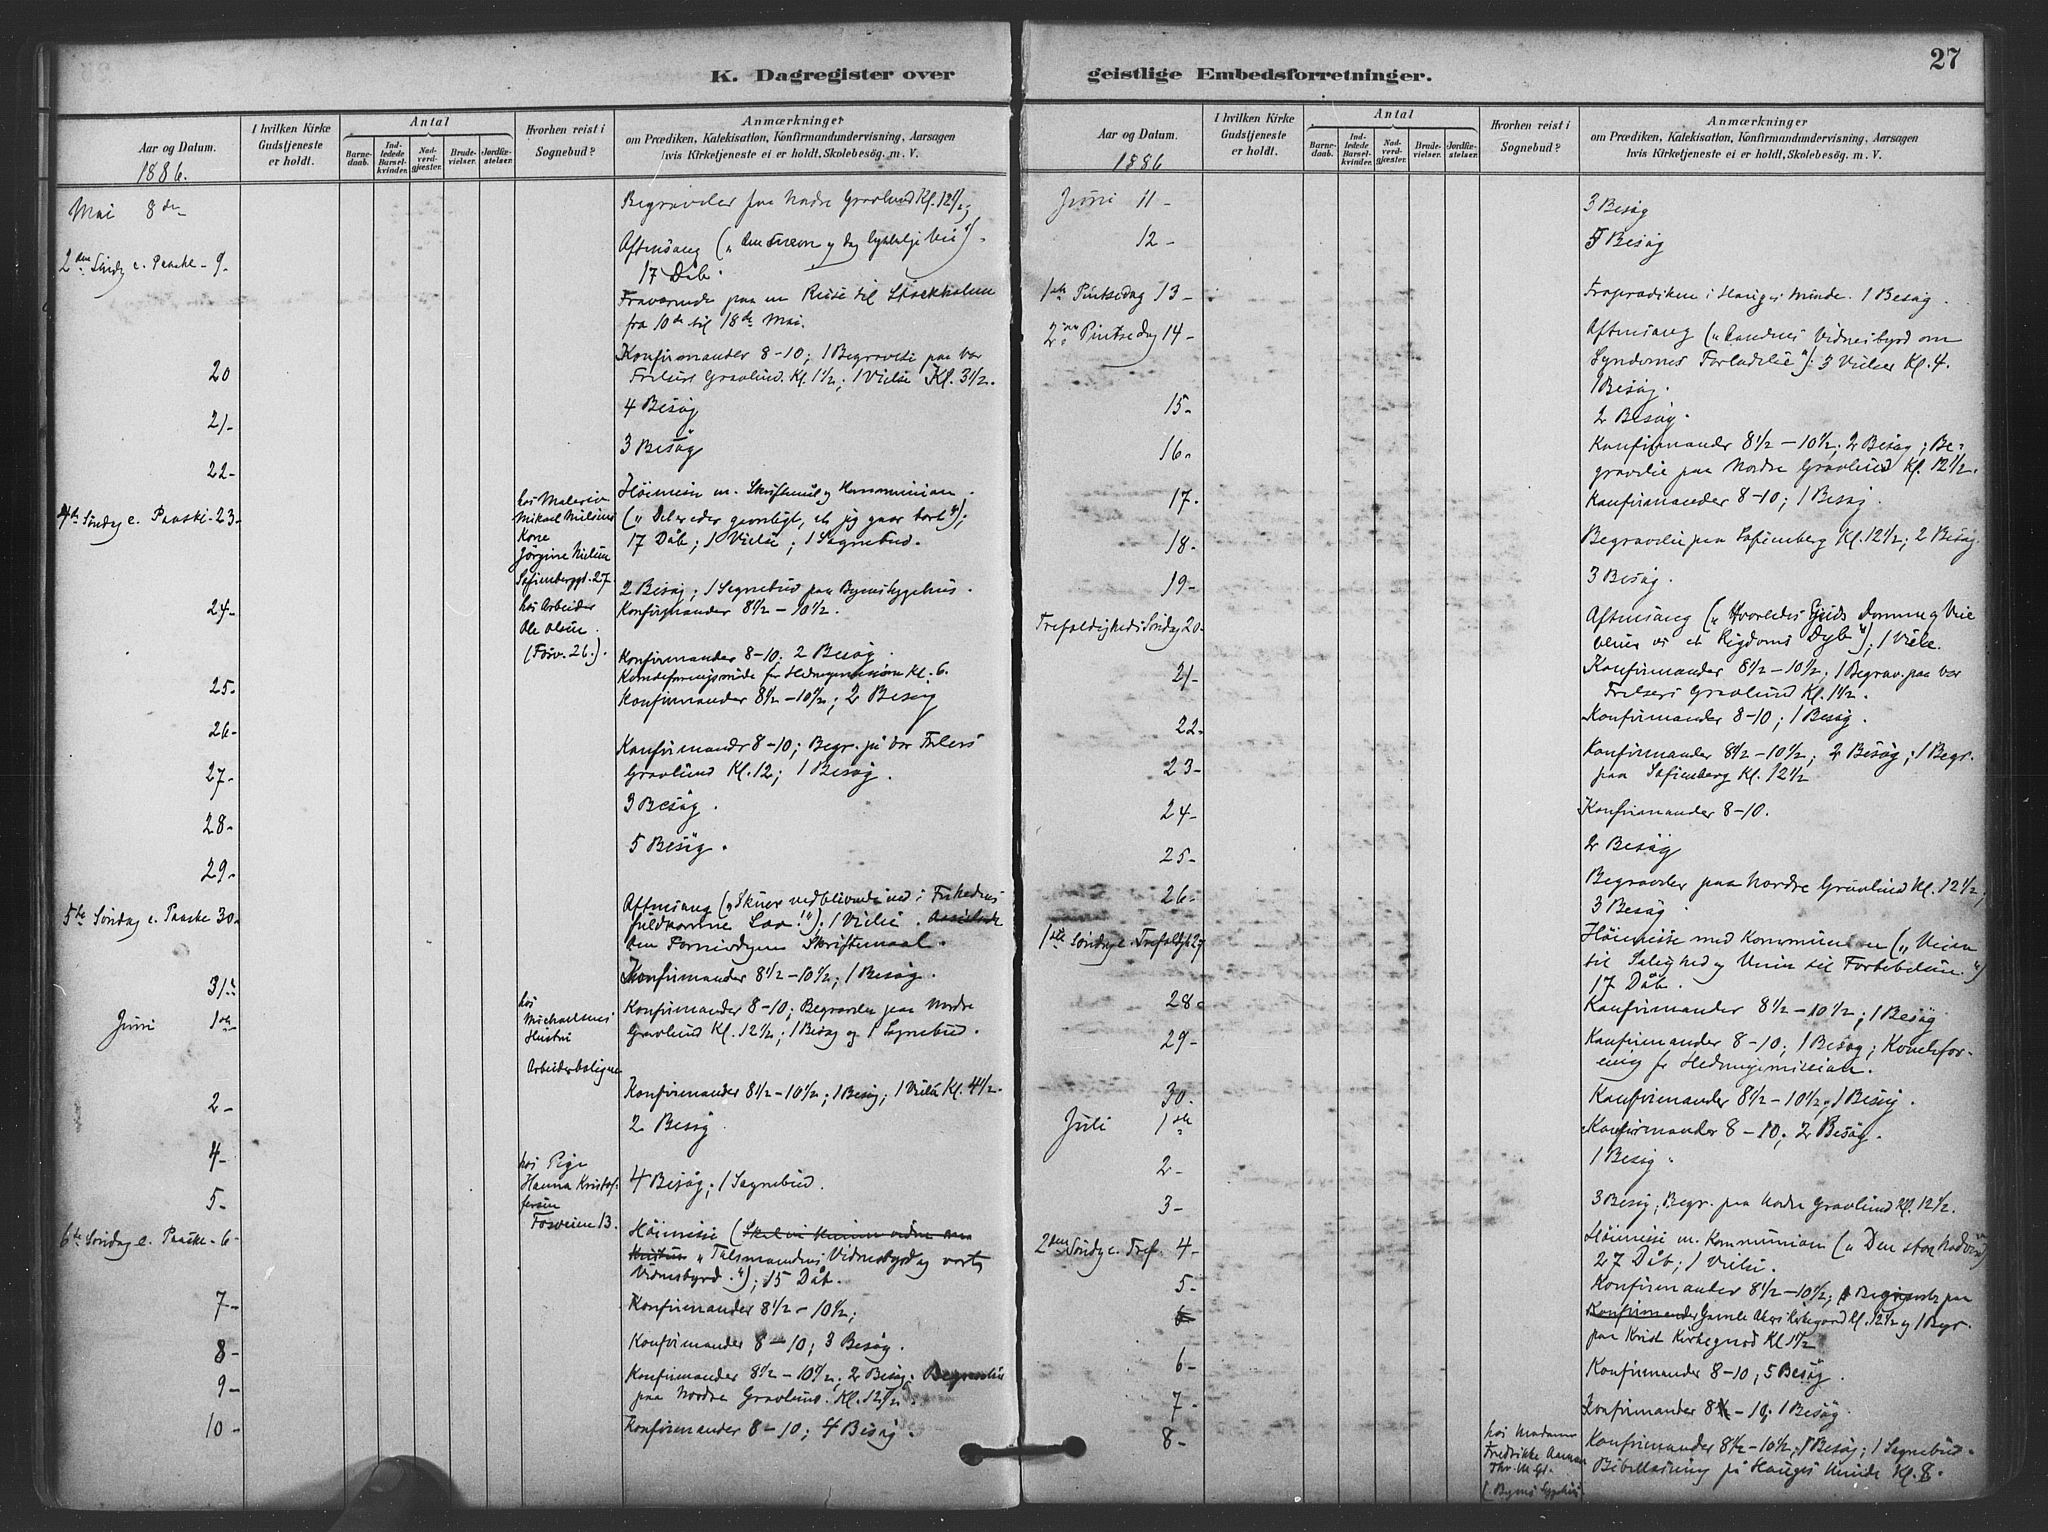 27
K. Dagregister over
geistlige Embedsforretninger.
Aar og Datum.
1886.
I hvilken Kirke
Gudstjeneste
er holdt.
Antal
Barne-
daab.
Ind-
ledede
Barsel-
kvinder.
Nad-
verd-
gjester.
Brude-
vielser.
Jordfæ-
stelser.
Hvorhen reist i
Sognebud?
Anmærkninger
om Prædiken, Katekisation, Konfirmandundervisning, Aarsagen
hvis Kirketjeneste ei er holdt, Skolebesøg. m. V.
Mai 8de
Begravelser paa Nordre Gravlund Kl. 12½;
2den Søndg e. Paaske - 9 -
Aftensang
17 Dåb.
Fraværende paa en Reise til Stockholm
fra 10de til 18de Mai.
20
Konfirmander 8-10; 1 Begravelse paa Vor
Frelsers Gravlund. Kl. 1½; 1 Vielse Kl. 3½.
21-
4 Besøg
22-
3 Besøg
4de Søndag e. Paaske - 23 -
hos
Mikael Nielsens
Kone
Jørgine Nielsen
Sofienberggt. 27
Høimesse m. Skriftemål og Kommunion.
("Det er eder gavnligt, at jeg gaar bort");
17 Dåb; 1 Vielse; 1 Sognebud.
24-
hos Arbeider
Ole Olsen.
(Fosv. 26.)
2 Besøg; 1 Sognebud paa Byens Sygehus.
Konfirmander 8½ - 10½.
25-
Konfirmander 8-10. 2 Besøg.
Kvindeforeningsmøde for Hedningemissionen Kl. 6.
26-
Konfirmander 8½ - 10½; 2 Besøg
27-
Konfirmander 8-10; Begr. på Vor Frelsers
Gravlund Kl. 12; 1 Besøg.
28-
3 Besøg.
29-
5 Besøg.
5te Søndag e. Paaske 30-
Aftensang ("Skuer vedblivende ind i Frihedens
fuldkomne Lov!"); 1 Vielse.
Skriftemaal.
31te
Konfirmander 8½ - 10½; 1 Besøg.
Juni 1ste
hos
Michaelsens
Hustru
Arbeiderboligne
Konfirmander 8-10; Begravelse paa Nordre
Gravlund Kl. 12½; 1 Besøg og 1 Sognebud.
2-
Konfirmander 8½ - 10½; 1 Besøg; 1 Vielse Kl. 4½.
4-
2 Besøg
5-
hos Pige
Hanna Kristof-
fersen
Fosveien 13.
4 Besøg; 1 Sognebud.
6te Søndag e. Paaske - 6 -
Høimesse (
"Talsmandens Vidnesbyrd og vort
Vidnesbyrd."); 15 Dåb.
7-
Konfirmander 8½ - 10½;
8-
Konfirmander 8-10; 3 Besøg.
9-
Konfirmander 8½ - 10½; 2 Besøg; Begravelse
paa Nordre Gravlund. Kl. 12½.
10-
Konfirmander 8-10; 4 Besøg.
Aar og Datum.
1886
I hvilken Kirke
Gudstjeneste
er holdt.
Antal
Barne-
daab.
Ind-
ledede
Barsel-
kvinder.
Nad-
verd-
gjester.
Brude-
vielser.
Jordfæ-
stelser.
Hvorhen reist i
Sognebud?
Anmærkninger
om Prædiken, Katekisation, Konfirmandundervisning, Aarsagen
hvis Kirketjeneste ei er holdt, Skolebesøg. m. V.
Juni 11-
3 Besøg
12-
5 Besøg
1ste Pintsedag 13-
Froprædiken i Hauges Minde. 1 Besøg.
2den Pintsedag 14-
Aftensang ("Aandens Vidnesbyrd om
Syndernes Forladelse"); 3 Vielser Kl. 4.
1 Besøg.
15-
2 Besøg.
16-
Konfirmander 8½ - 10½; 2 Besøg; Be-
gravelse paa Nordre Gravlund Kl. 12½.
17-
Konfirmander 8-10; 1 Besøg.
18-
Begravelse paa Sofienberg Kl. 12½; 2 Besøg.
19-
3 Besøg.
Trefoldigheds Søndag 20-
Aftensang ("Hvorledes Guds Domme og Veie
blive os et Rigdoms Dyb"); 1 Vielse.
21-
Konfirmander 8½ - 10½; 1 Begrav. paa Vor
Frelsers Gravlund Kl. 1½.
22-
Konfirmander 8-10; 1 Besøg.
23-
Konfirmander 8½ - 10½; 2 Besøg; 1 Begr.
paa Sofienberg Kl. 12½
24-
Konfirmander 8-10.
25-
2 Besøg
26-
Begravelser paa Nordre Gravlund Kl. 12½;
3 Besøg
1ste Søndg e. Trefoldigh 27
Høimesse med Kommunion ("Veien
til Salighed og Veien til Fortabelsen.")
17 Dåb.
28-
Konfirmander 8½ - 10½; 1 Besøg
29-
Konfirmander 8-10; 1 Besøg; Kvindefor-
ening for Hedningemissionen.
30-
Konfirmander 8½ - 10½; 1 Besøg.
Juli 1ste
Konfirmander 8-10; 2 Besøg.
2-
1 Besøg.
3-
3 Besøg; Begr. paa Nordre Gravlund Kl. 12½.
2den Søndg e. Tref. 4-
Høimesse m. Kommunion ("Den store Nadver")
27 Dåb; 1 Vielse.
5-
Konfirmander 8½ - 10½; Begravelse paa
Konfirmander Gamle Akers Kirkegaard Kl. 12½ og 1 Begr.
paa Krist Kirkegaard Kl 1½
6
6-
Konfirmander 8-10; 5 Besøg.
7-
Konfirmander 8½ - 10; 1 Besøg.
8-
hos Madame
Fredrikke
(Byens Sygehus.
Konfirmander 8½ - 10½; 1 Besøg; 1 Sognebud.
Bibellæsning på Hauges Minde Kl. 8.